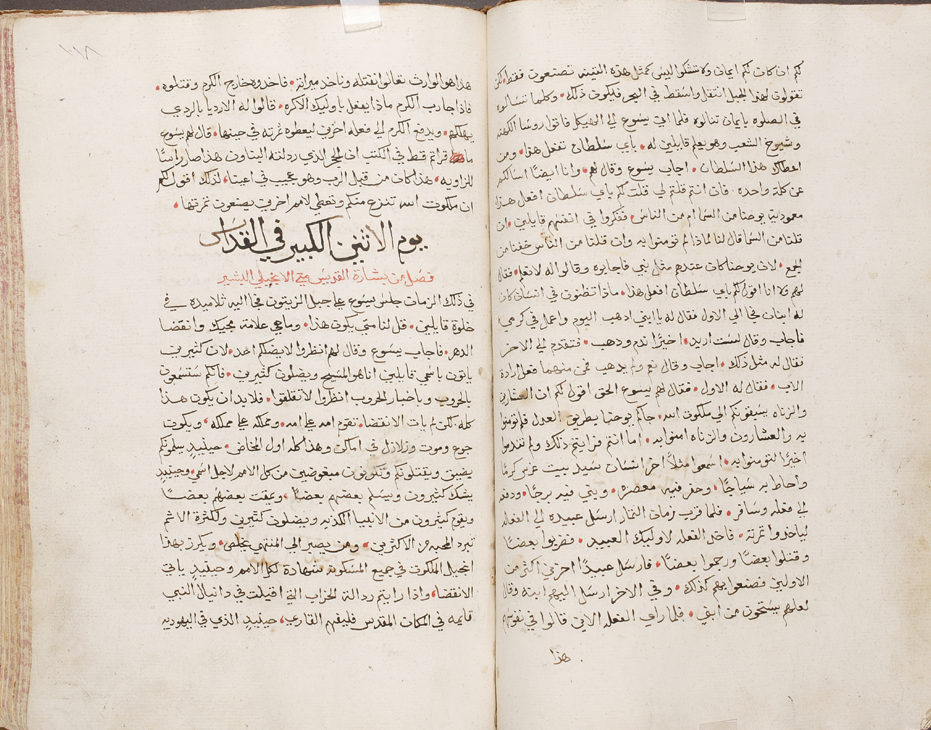 لكم ان كان لكم ايمان ولا تشكوا ليس كمثل هذه التينة تصنعون فقط لكن
تقولون لهذا الجبل انتقل واسقط في البحر فيكون ذلك • وكلما تسالوه
في الصلوه بايمان تنالوه فلما اتي يسوع الي الهيكل فاتوا روسا الكهنه
وشيوخ الشعب وهو يعلم قايلين له • باي سلطان تفعل هذا • ومن
اعطاك هذا السلطان • اجاب يسوع وقال لهم • وانا ايضًا اسالكم
عن كلمة واحده • فان انتم قلتم لي قلت لكم باي سلطان افعل هذا
معمودية يوحنا من السما ام من الناس • ففكروا في انفسهم قايلين • ان
قلنا من السما قال لنا لماذا لم تومنوا به وان قلنا من الناس خفنا من
الجمع • لان يوحنا كان عندهم مثل نبي فاجابوه وقالوا له لا نعلم • فقال
لهم ولا انا اقول لكم باي سلطان افعل هذا • ماذا تظنون في انسان كان
له ابنان فجا الي الاول فقال له يا ابني اذهب اليوم واعمل في كرمي
فاجاب وقال لست اريد • اخيرًا ندم وذهب • فتقدم الي الاخر
فقال له مثل ذلك • اجاب وقال نعم ولم يذهب فمن منهما فعل ارادة
الاب • فقال له الاول • فقال لهم يسوع الحق اقول لكم ان العشارين
والزناه يسبقونكم الي ملكوت الله • جاكم يوحنا بطريق العدل فلم تومنوا
به والعشارون والزناه امنوا به • اما انتم فرايتم ذلك ولم تندموا
اخيرًا لتومنوا به • اسمعوا مثلًا اخر انسان سيد بيت غرس كرمًا
واحاط به سياجًا • وحفر فيه معصره • وبني فيه برجًا • ودفعه
الي فعله وسافر • فلما قرب زمان الثمار ارسل عبيده الي الفعله
لياخذوا ثمرته • فاخذ الفعله لاوليك العبيد • فضربوا بعضًا
وقتلوا بعضًا ورجموا بعضًا • فارسل عبيدًا اخرين اكثر من
الاولين فصنعوا بهم كذلك • وفي الاخر ارسل اليهم ابنه وقال
لعلهم يستحون من ابني • فلما راي الفعله الابن قالوا في نفوسهم
هذا
١١٨
هذا هو الوارث تعالوا نقتله وناخذ ميراثه • فاخذوه خارج الكرم وقتلوه •
فاذا جا رب الكرم ماذا يفعل باوليك الكره • قالوا له الارديا بالردي
يهلكهم • ويدفع الكرم الي فعله اخرين ليعطوه ثمرته في حينها • قال لهم يسوع
ما قراتم قط في الكتب ان الحجر الذي رذلته البناون هذا صار راسًا
للزاويه • هذا كان من قبل الرب وهو عجيب في اعيننا • لذلك اقول لكم
ان ملكوت الله تنزع منكم وتعطي لامم اخرين يصنعون ثمرتها •
يوم الاثنين الكبير في القداس
فصل من بشارة القديس متي الانجيلي البشير
في ذلك الزمان جلس يسوع علي جبل الزيتون فجا اليه تلاميذه في
خلوة قايلين • قل لنا متي يكون هذا • وما هي علامة مجيك وانقضا
الدهر • فاجاب يسوع وقال لهم انظروا لا يضلكم احد • لان كثيرين
ياتون باسمي قايلين انا هو المسيح ويضلون كثيرين • فانكم ستسمعون
بالحروب وباخبار الحروب انظروا لا تقلقوا • فلا بد ان يكون هذا
كله • لكن لم يات الانقضا • تقوم امه علي امه • ومملكه علي مملكه • ويكون
جوع وموت وزلازل في اماكن وهذا كله اول المخاض • حينيذٍ يسلمونكم
يضيق ويقتلونكم وتكونون مبغوضين من كل الامم لاجل اسمي • وحينيذٍ
يشك كثيرون ويسلم بعضهم بعضًا • ويمقت بعضهم بعضًا
ويقوم كثيرون من الانبيا الكذبه ويضلون كثيرين • ولكثرة الاثم
تبرد المحبه من الاكثرين • ومن يصبر الي المنتهي يخلص • ويكرز بهذا
انجيل الملكوت في جميع المسكونه شهادة لكل الامم وحينيذٍ ياتي
الانقضا • واذا رايتم رذالة الخراب التي قيلت في دانيال النبي
قايمه في المكان المقدس فليفهم القاري • حينيذٍ الذي في اليهوديه